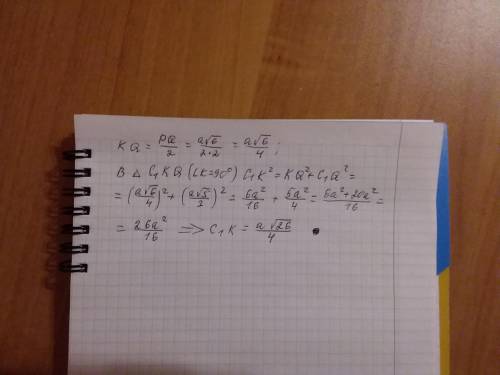 KQ = PQ/2 = a√6/2·2 = a√6/4 ;
В △ C₁KQ (∠K=90°) C₁K² = KQ² + C₁Q² =
= (a√6/4)² + (a√5/2)² = 6a²/16 + 5a²/4 = 6a²+20a²/16 =
= 26a²/16 => C₁K = a√26/4